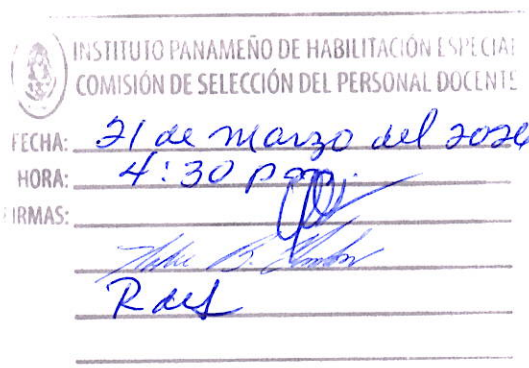 INSTITUTO PANAMEÑO DE HABILITACIÓN ESPECIAL
COMISIÓN DE SELECCIÓN DEL PERSONAL DOCENTE
FECHA: 21 de marzo del 2026
HORA: 4:30 p.m.
FIRMAS: